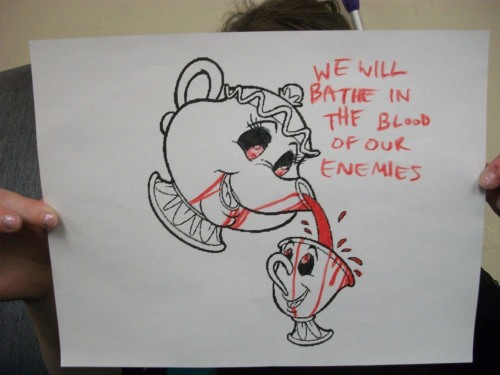 WE WILL
BATHE IN
THE BLOOD
OF OUR
ENEMIES